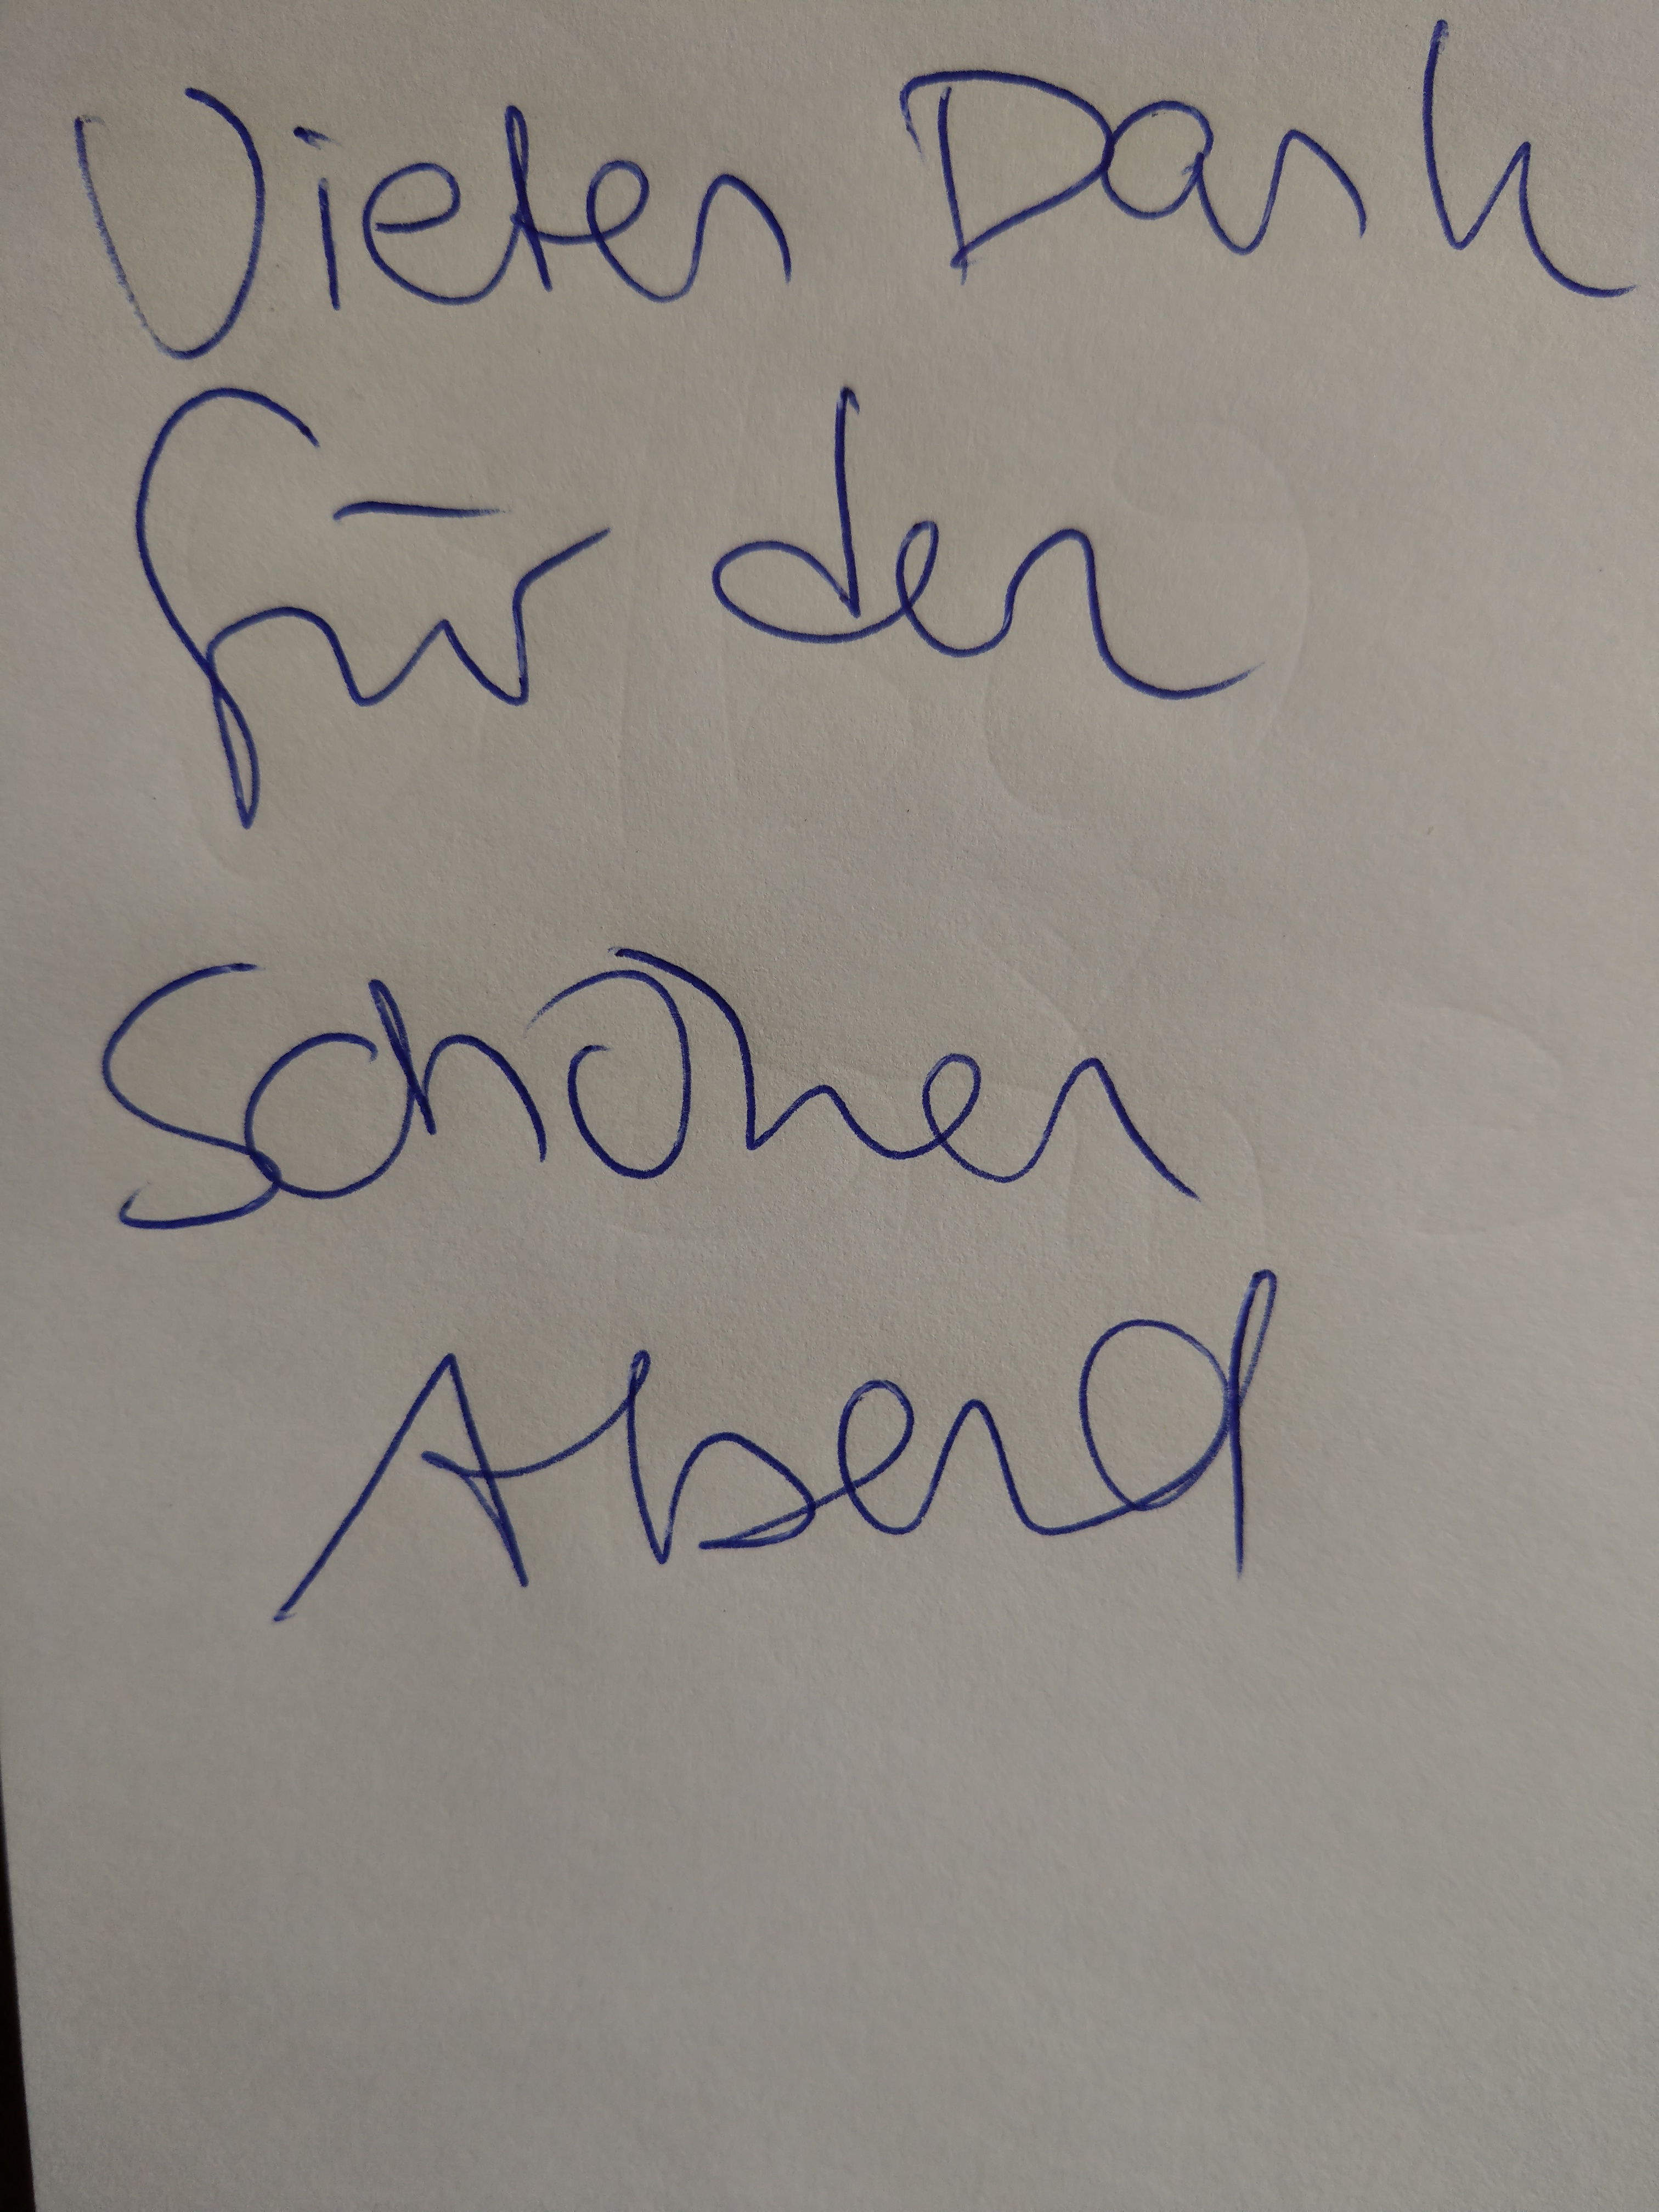 Vielen Dank
für den
schönen
Abend